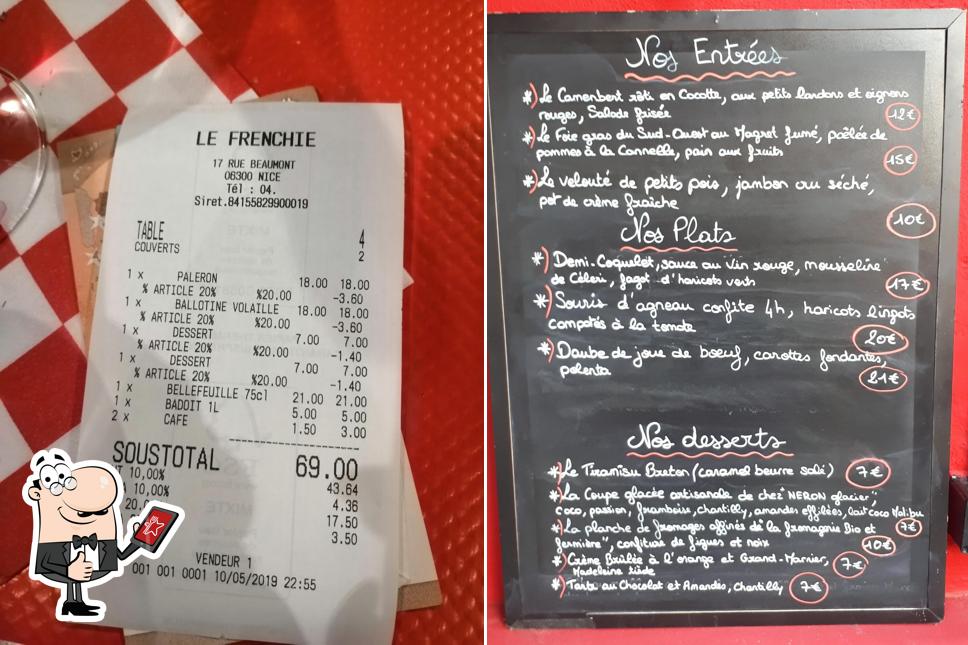 LE FRENCHIE
17 RUE BEAUMONT
06300 NICE
Tél : 04.
Siret.84155829900019
TABLE 4
COUVERTS 2
1 x PALERON 18.00 18.00
% ARTICLE 20% %20.00 -3.60
1 x BALLOTINE VOLAILLE 18.00 18.00
% ARTICLE 20% %20.00 -3.60
1 x DESSERT 7.00 7.00
% ARTICLE 20% %20.00 -1.40
1 x DESSERT 7.00 7.00
% ARTICLE 20% %20.00 -1.40
1 x BELLEFEUILLE 75cl 21.00 21.00
1 x BADOIT 1L 5.00 5.00
2 x CAFE 1.50 3.00
SOUSTOTAL 69.00
HT 10,00% 43.64
10,00% 4.36
20, 17.50
3.50
VENDEUR 1
001 001 0001 10/05/2019 22:55
Nos Entrées
*) Le Camembert rôti en Cocotte, aux petits lardons et oignons
rouges, Salade frisée 12€
*) Le Foie gras du Sud-Ouest au Magret fumé, poêlée de
pommes à la Cannelle, pain aux fruits 15€
*) Le velouté de petits pois, jambon cru séché,
pot de crème fraîche 10€
Nos Plats
*) Demi-Coquelet, sauce au Vin rouge, mousseline
de Céleri, fagot d'haricots verts 17€
*) Souris d'agneau confite 4h, haricots lingots
compotés à la tomate 20€
*) Daube de joue de boeuf, carottes fondantes,
polenta 21€
Nos desserts
*) Le Tiramisu Breton (caramel beurre salé) 7€
*) La Coupe glacée artisanale de chez "NERON glacier",
coco, passion, framboise, chantilly, amandes effilées, lait coco Malibu 7€
*) La planche de fromages affinés de la fromagerie Bio et
fermière", confiture de figues et noix 10€
*) Crème Brûlée à l'orange et Grand-Marnier,
Madeleine tiède 7€
*) Tarte au Chocolat et Amandes, Chantilly 7€